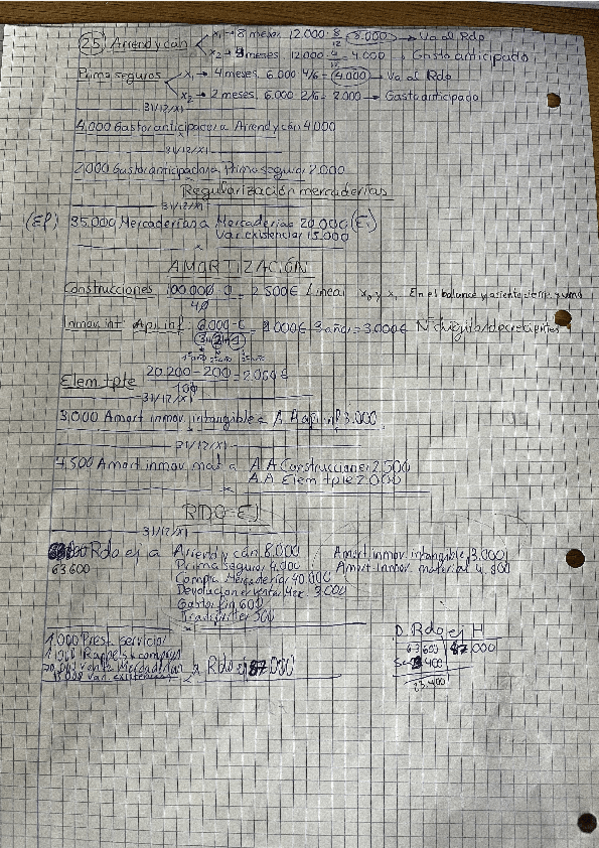 (25) Arriend y cán x₁ → 8 meses 12.000 · 8/12 (8.000) → Va al Rdo
x₂ → 4 meses 12.000 4/12 = 4.000 → Gasto anticipado
Prima seguros x₁ → 4 meses 6.000 4/6 = (4.000) → Va al Rdo
x₂ → 2 meses 6.000 2/6 = 2.000 → Gasto anticipado
31/12/X1
4.000 Gastos anticipados a Arriend y cán 4.000
31/12/X1
2.000 Gastos anticipados a Prima seguros 2.000
Regularización mercaderías
31/12/X1
35.000 Mercaderías a Mercaderías 20.000
Var. existencias 15.000
AMORTIZACIÓN
Construcciones 100.000-0 / 40 = 2.500€ Lineal x₀ y x₁
Inmov. int Apl. inf. 6.000-0 3 años = 3.000€ Nº dígitos decrecientes
3+2+1
Elem tpte 20.200-200 / 10 = 2.000€
31/12/X1
3.000 Amort inmov. intangible a A.A apl. inf 3.000
31/12/X1
4.500 Amort inmov mat a A.A Construcciones 2.500
A.A Elem tpte 2.000
RDO EJ
31/12/X1
Rdo ej a Arriend y cán 8.000 Amort inmov. intangible 3.000
63.600 Prima seguros 4.000 Amort inmov. material 4.500
Compra Mercaderías 40.000
Devoluciones venta Mer. 3.000
Gastos fin 600
Transportes 500
1.000 Prest. servicios
Rappels x compras
70.000 venta mercaderías a Rdo ej 87.000
15.000 var. existencias
D Rdo ej H
63.600 87.000
23.400